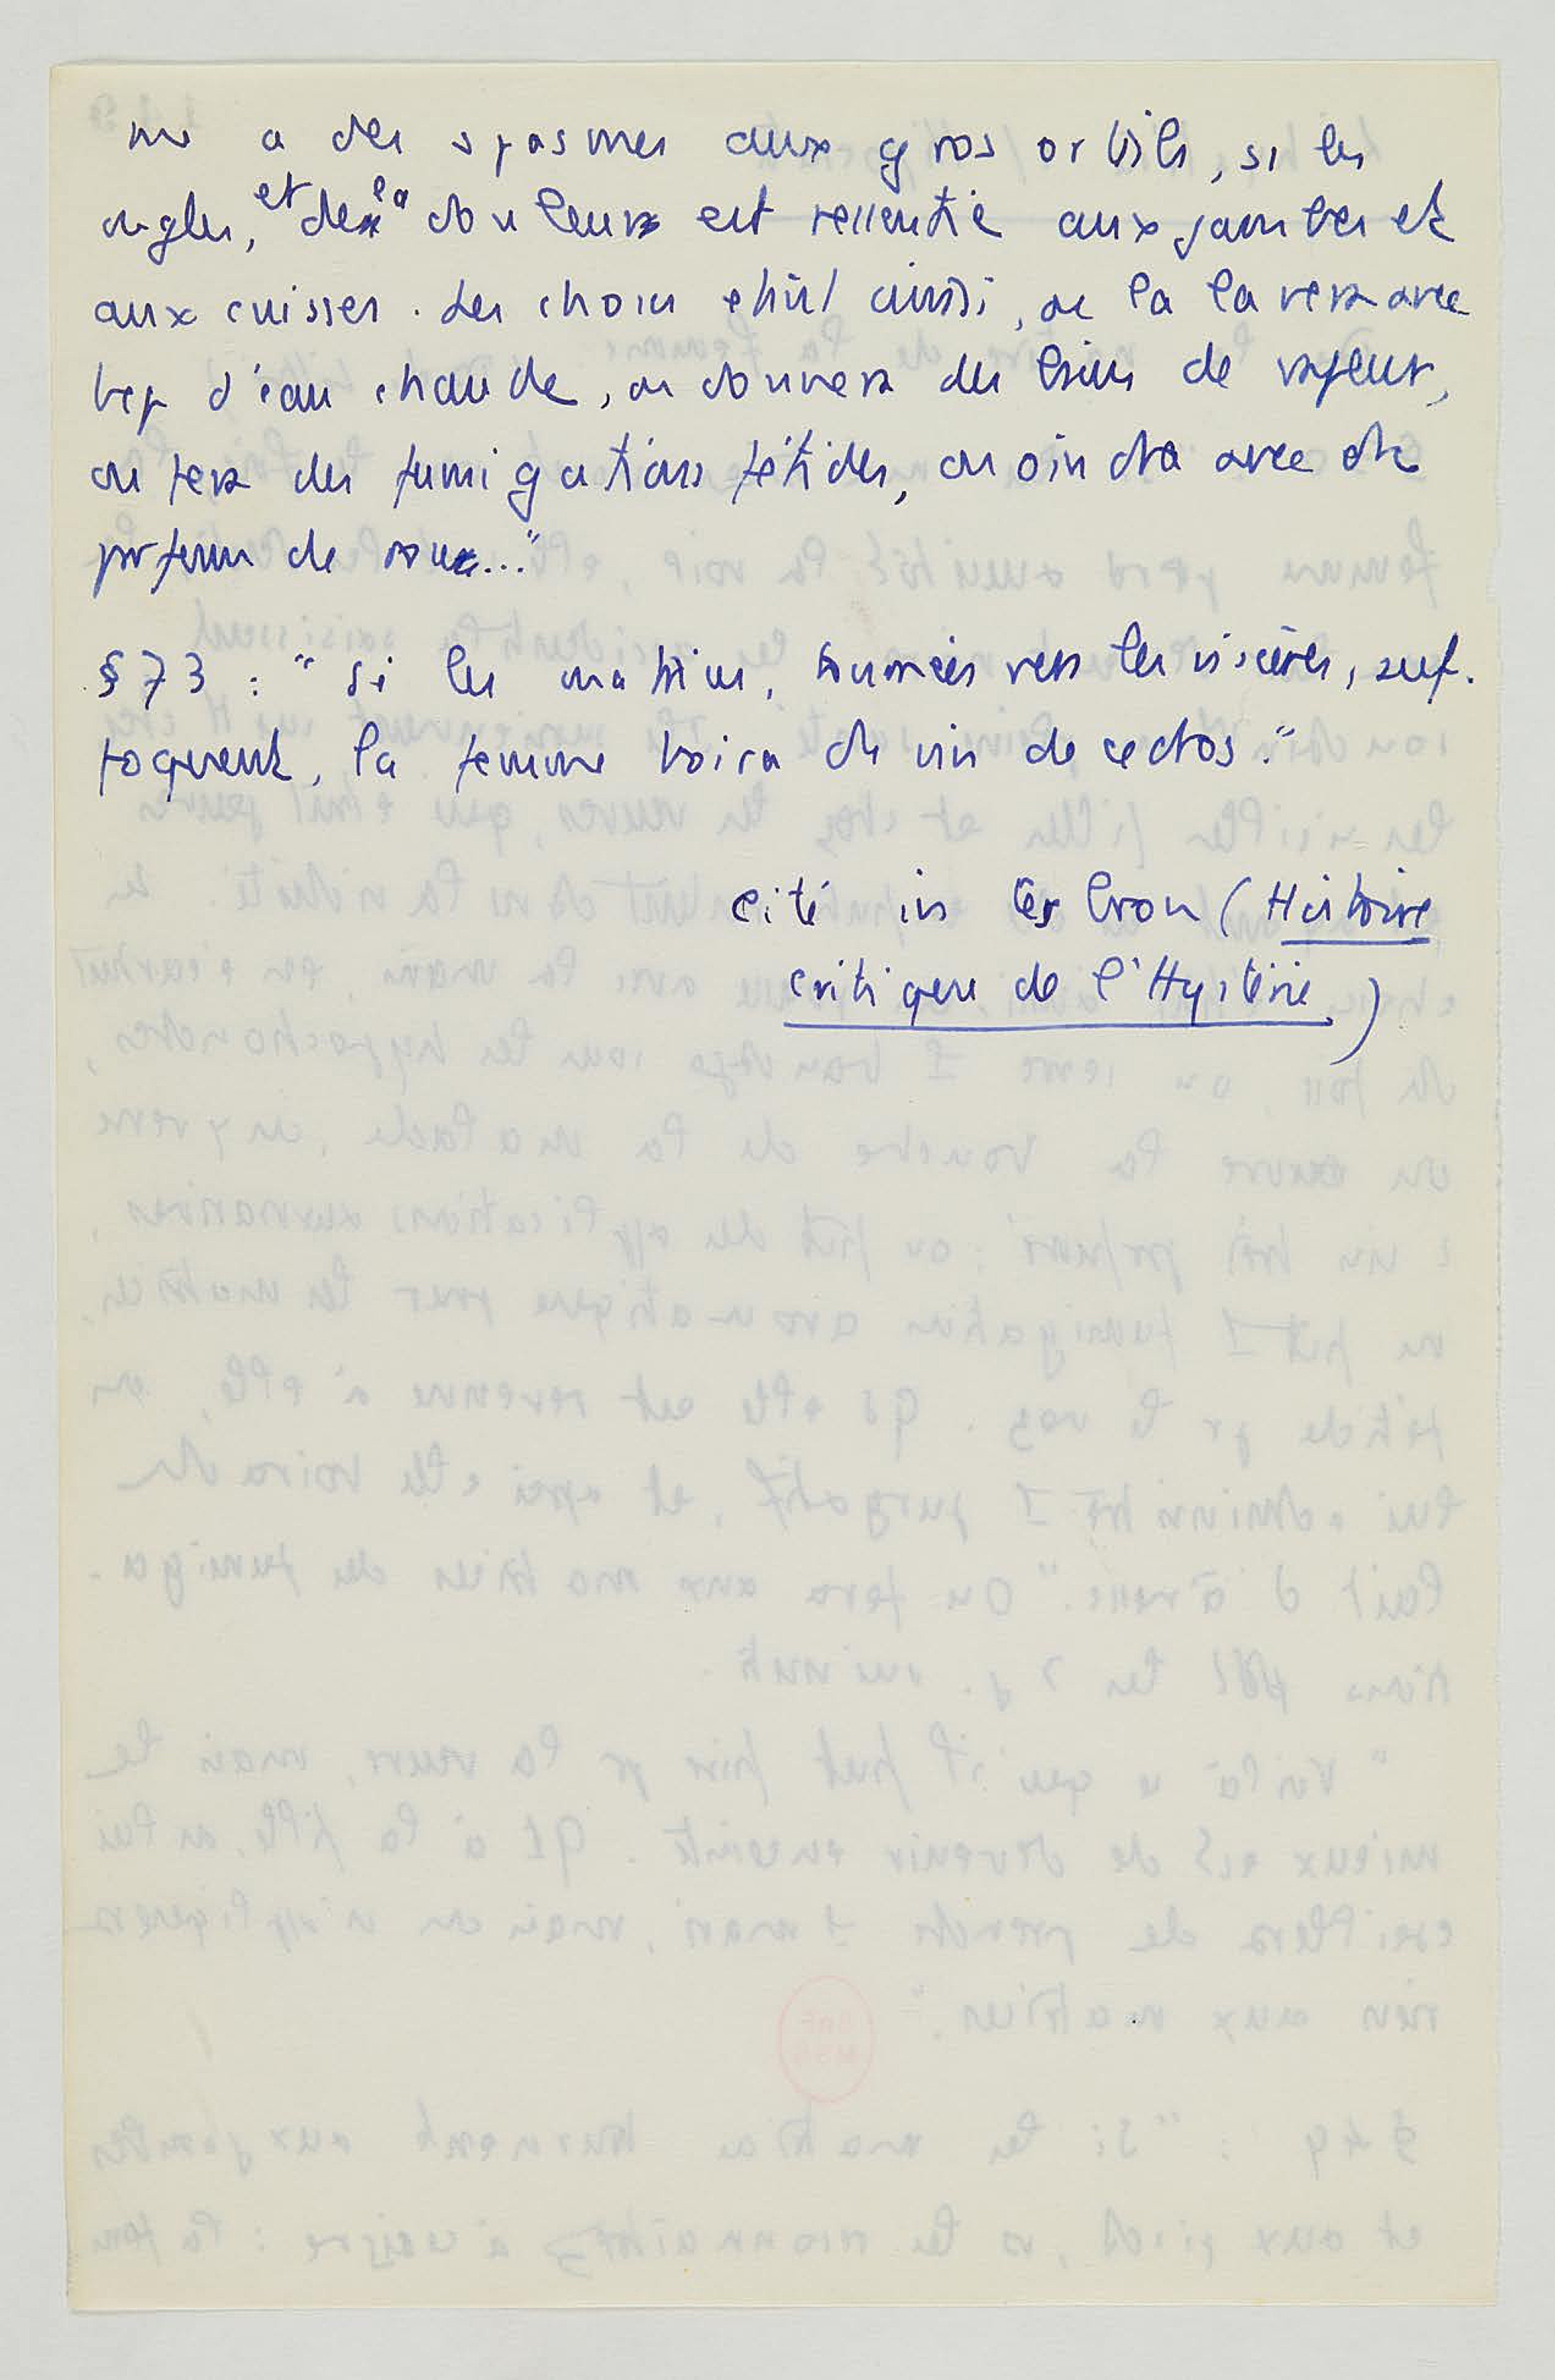 me a des spasmes aux gros orteils, si les
ongles, et la douleur est ressentie aux jambes et
aux cuisses. Les choses étant ainsi, on la lavera avec
bcp d'eau chaude, on donnera des bains de vapeur,
on fera des fumigations fétides, on oindra avec du
parfum de rose..."
§ 73 : "Si les matrices, tournées vers les viscères, suf-
foquent, la femme boira du vin de cedros."
cité in (Histoire
critique de l'Hystérie)